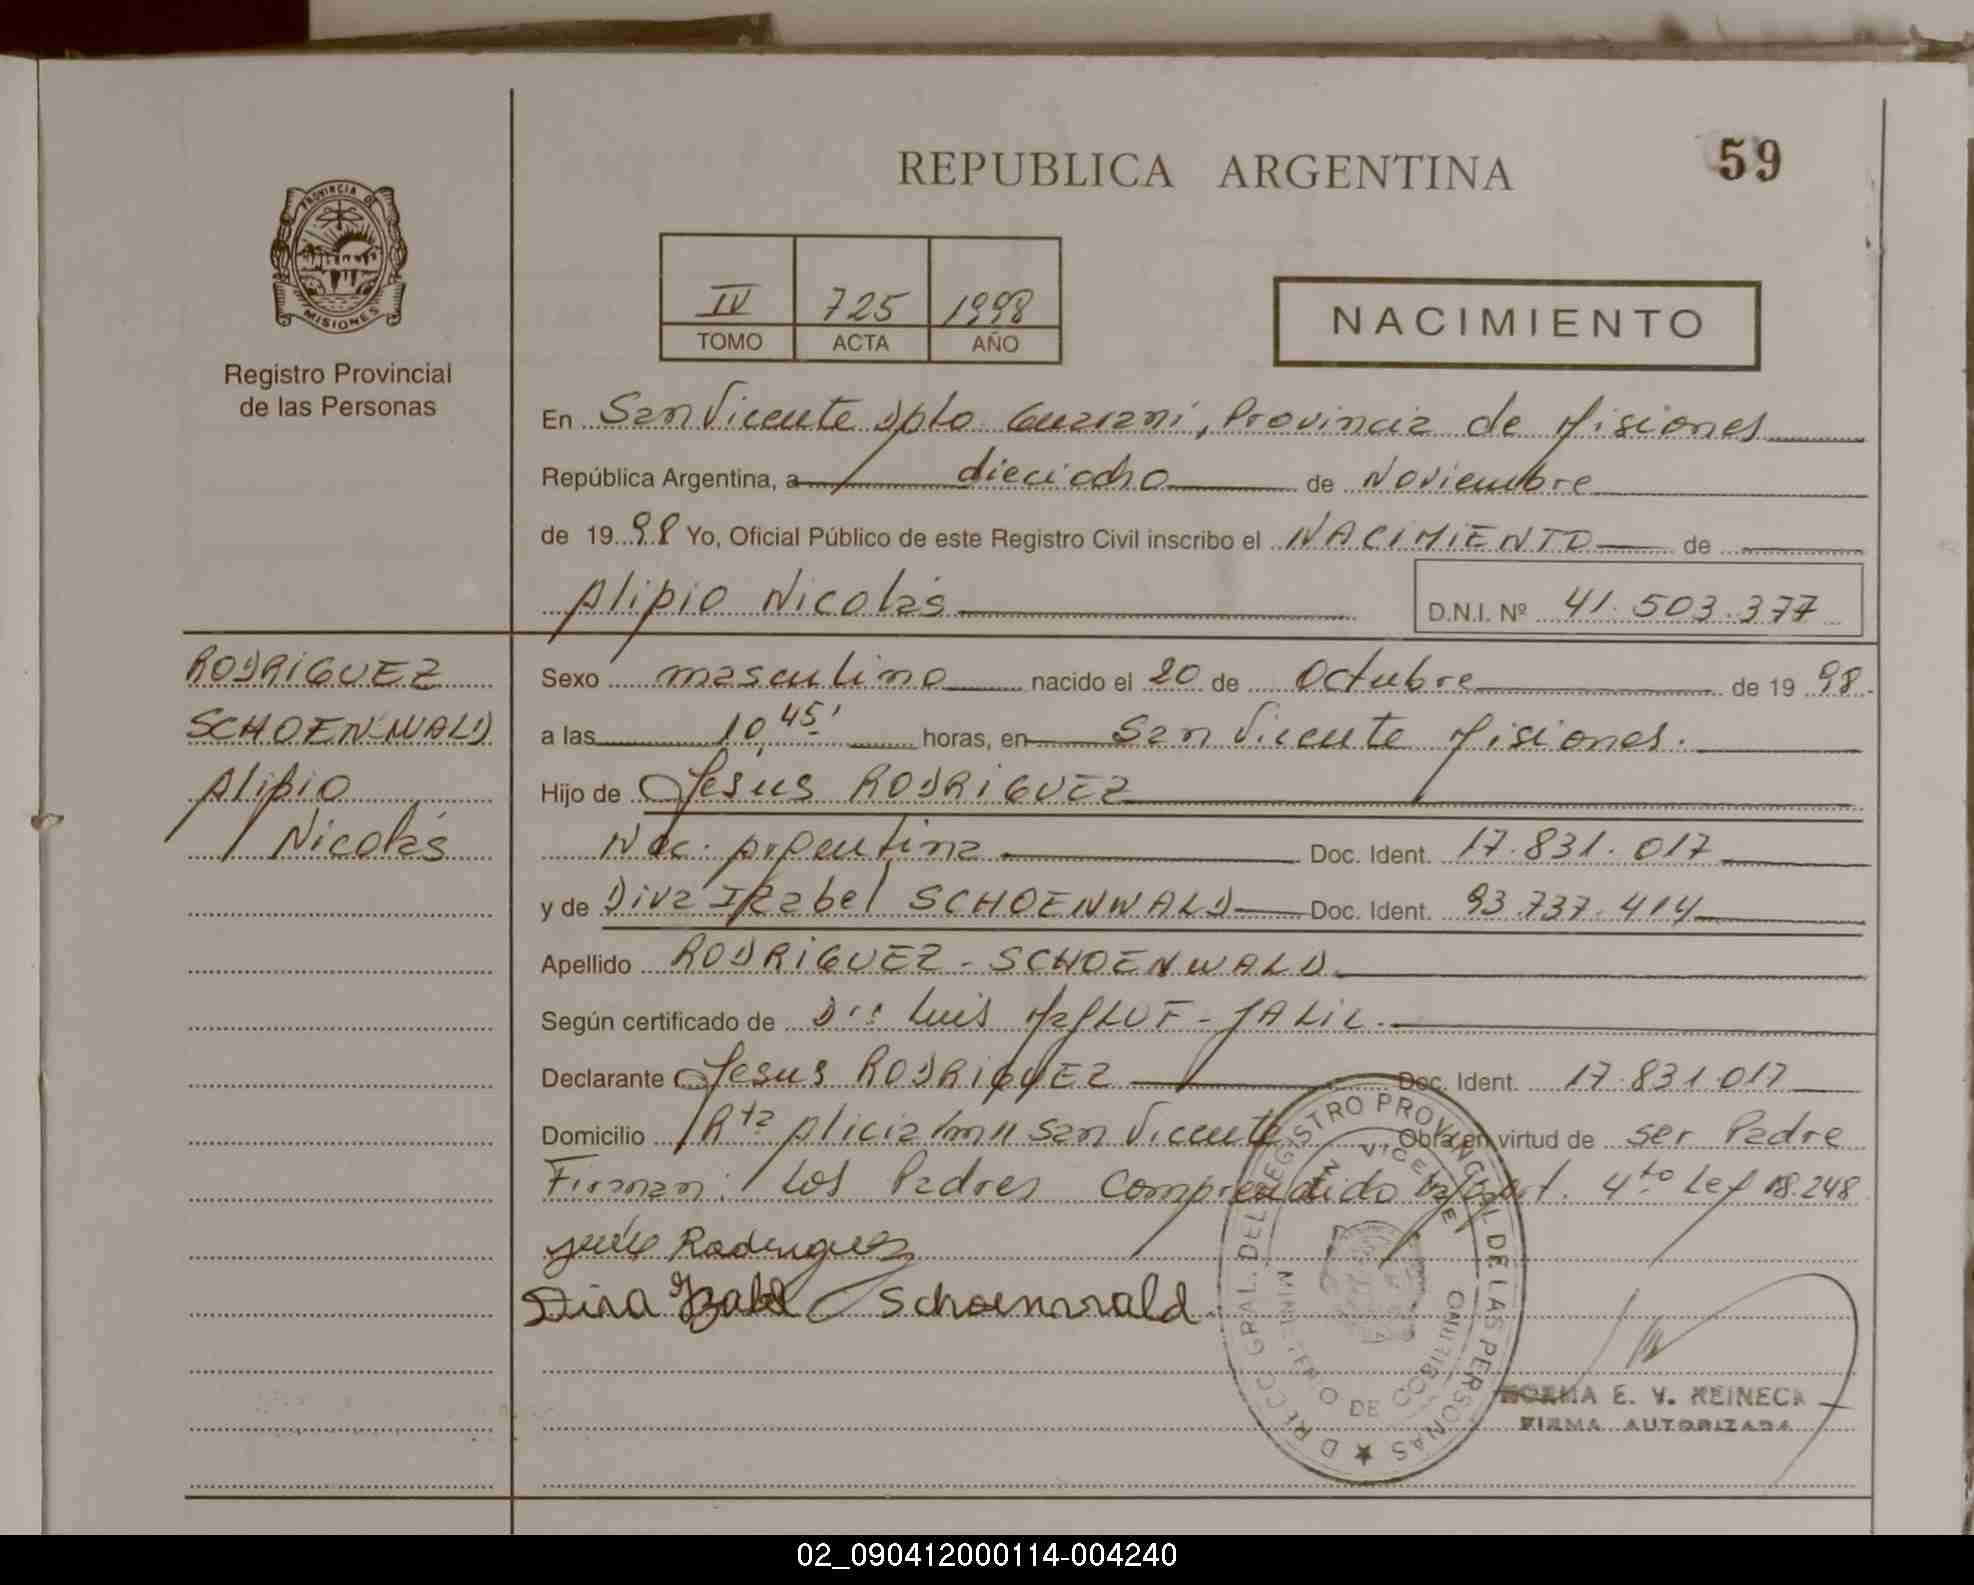 REPUBLICA ARGENTINA
59
PROVINCIA DE
MISIONES
Registro Provincial
de las Personas
IV 725 1998
TOMO ACTA AÑO
NACIMIENTO
En San Vicente Dpto Guarani, Provincia de Misiones
República Argentina, a dieciocho de Noviembre
de 1998 Yo, Oficial Público de este Registro Civil inscribo el NACIMIENTO de
Alipio Nicolás D.N.I. Nº 41.503.377
RODRIGUEZ
SCHOENWALD
Alipio
Nicolás
Sexo masculino nacido el 20 de Octubre de 1998.
a las 10,45' horas, en San Vicente Misiones.
Hijo de Jesus RODRIGUEZ
Nac. Argentina Doc. Ident. 17.831.017
y de Diva Izabel SCHOENWALD Doc. Ident. 93.737.414
Apellido RODRIGUEZ - SCHOENWALD
Según certificado de Dr: Luis JALIL.
Declarante Jesus RODRIGUEZ Doc. Ident. 17.831.017
Domicilio Rta Alicia San Vicente Obra en virtud de ser Padre
Firman: Los Padres Comprendido art. 4to Ley 18.248
Rodriguez
Diva Izabel Schoenwald
DIRECC GRAL. DEL REGISTRO PROVINCIAL DE LAS PERSONAS
SAN VICENTE
MINISTERIO DE GOBIERNO
NORMA E. V. REINECK
FIRMA AUTORIZADA
02_090412000114-004240